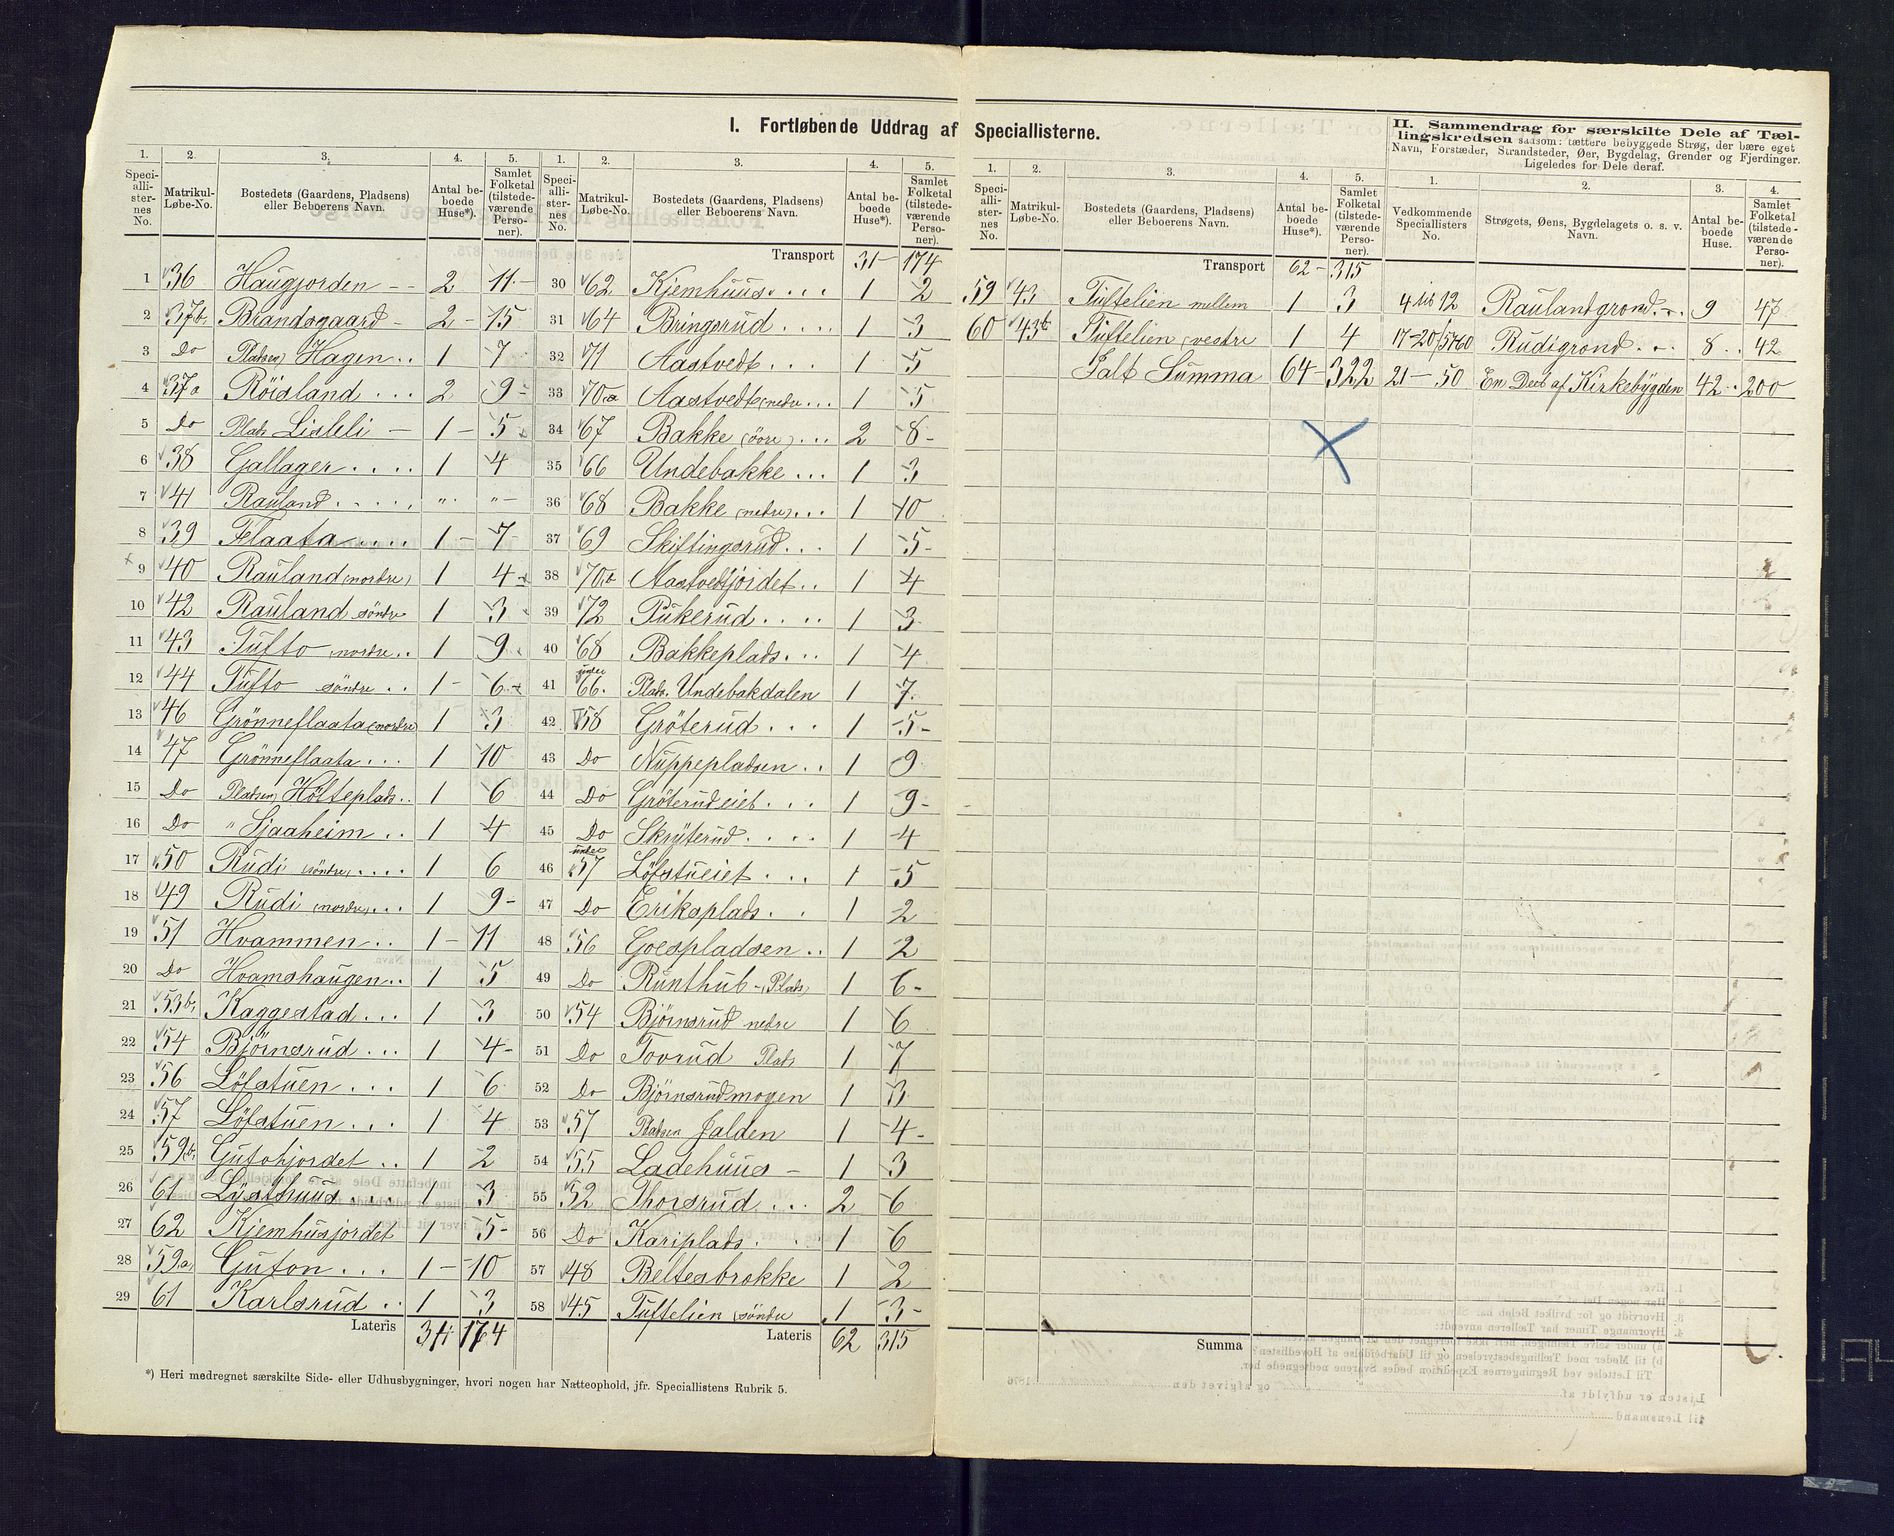 I. Fortløbende Uddrag af Speciallisterne.
II. Sammendrag for særskilte Dele af Tæl-
lingskredsen saasom: tættere bebyggede Strøg, der bære eget
Navn, Forstæder, Strandsteder, Øer, Bygdelag, Grender og Fjerdinger.
Ligeledes for Dele deraf.
1. 2. 3. 4. 5.
Speciallisternes No. Matrikul-Løbe-No. Bostedets (Gaardens, Pladsens) eller Beboerens Navn. Antal beboede Huse*). Samlet Folketal (tilstedeværende Personer).
1 36 Haugjorden 2 11
2 37b. Brandsgaard 2 15
3 Do Pladsen Hagen 1 7
4 37a Röisland 2 9
5 Do Plads Lisleli 1 5
6 38 Gallager 1 4
7 41 Rauland " "
8 39 Flaata 1 7
9 40 Rauland (nordre) 1 4
10 42 Rauland söndre 1 3
11 43 Tufto nordre 1 9
12 44 Tufto söndre 1 6
13 46 Grönneflaata (nordre) 1 3
14 47 Grönneflaata 1 10
15 Do Pladsen Holteplads 1 6
16 Do " Sjaaheim 1 4
17 50 Rudi (söndre) 1 6
18 49 Rudi (nordre) 1 9
19 51 Hvammen 1 11
20 Do Hvamshaugen 1 5
21 53b. Kaggestad 1 3
22 54 Björnsrud 1 4
23 56 Löfstuen 1 6
24 57 Löfstuen 1 4
25 59b. Gutohjordet 1 2
26 61 Lysthuus 1 3
27 62 Kjemhusjordet 1 5
28 59a Guton 1 10
29 61 Karlsrud 1 3
Lateris 31 174
*) Heri medregnet særskilte Side- eller Udhusbygninger, hvori nogen har Natteophold, jfr. Speciallistens Rubrik 5.
1. 2. 3. 4. 5.
Speciallisternes No. Matrikul-Løbe-No. Bostedets (Gaardens, Pladsens) eller Beboerens Navn. Antal beboede Huse*). Samlet Folketal (tilstedeværende Personer).
Transport 31 174
30 62 Kjemhuus 1 2
31 64 Bringsrud 1 3
32 71 Aastvedt 1 5
33 70a Aastvedt (nedre 1 5
34 67 Bakke (övre) 2 8
35 66 Undebakke 1 3
36 68 Bakke (nedre) 1 10
37 69 Skiftingsrud 1 5
38 70b Aastvedtjordet 1 4
39 72 Pukerud 1 3
40 68 Bakkeplads 1 4
41 under 66. Plads. Undebakdalen 1 7
42 58 Gröterud 1 5
43 Do Nuppepladsen 1 9
44 Do Gröterudeiet 1 9
45 Do Skryterud 1 4
46 under 57 Löfstueiet 1 5
47 Do Eriksplads 1 2
48 56 Goespladsen 1 2
49 Do Runthub (Plads) 1 6
50 54 Björnsrud nedre 1 6
51 Do Tovrud Plads 1 7
52 Do Björnsrudmogen 1 3
53 57 Pladsen Jalden 1 4
54 55 Ladehuus 1 3
55 52 Thorsrud 2 6
56 Do Kariplads 1 6
57 48 Beltesbrokke 1 2
58 45 Tuftelien (söndre 1 3
Lateris 62 315
1. 2. 3. 4. 5.
Speciallisternes No. Matrikul-Løbe-No. Bostedets (Gaardens, Pladsens) eller Beboerens Navn. Antal beboede Huse*). Samlet Folketal (tilstedeværende Personer).
Transport 62 315
59 43 Tuftelien mellem 1 3
60 43b Tuftelien vestre 1 4
Ialt Summa 64 322
Summa
1. 2. 3. 4.
Vedkommende Speciallisters No. Strøgets, Øens, Bygdelagets o. s. v. Navn. Antal beboede Huse. Samlet Folketal (tilstedeværende Personer).
4 til 12 Raulandgrond 9 47
17-20/57-60 Rudigrond 8 42
21-50 En Deel af Kirkebygden 42 200